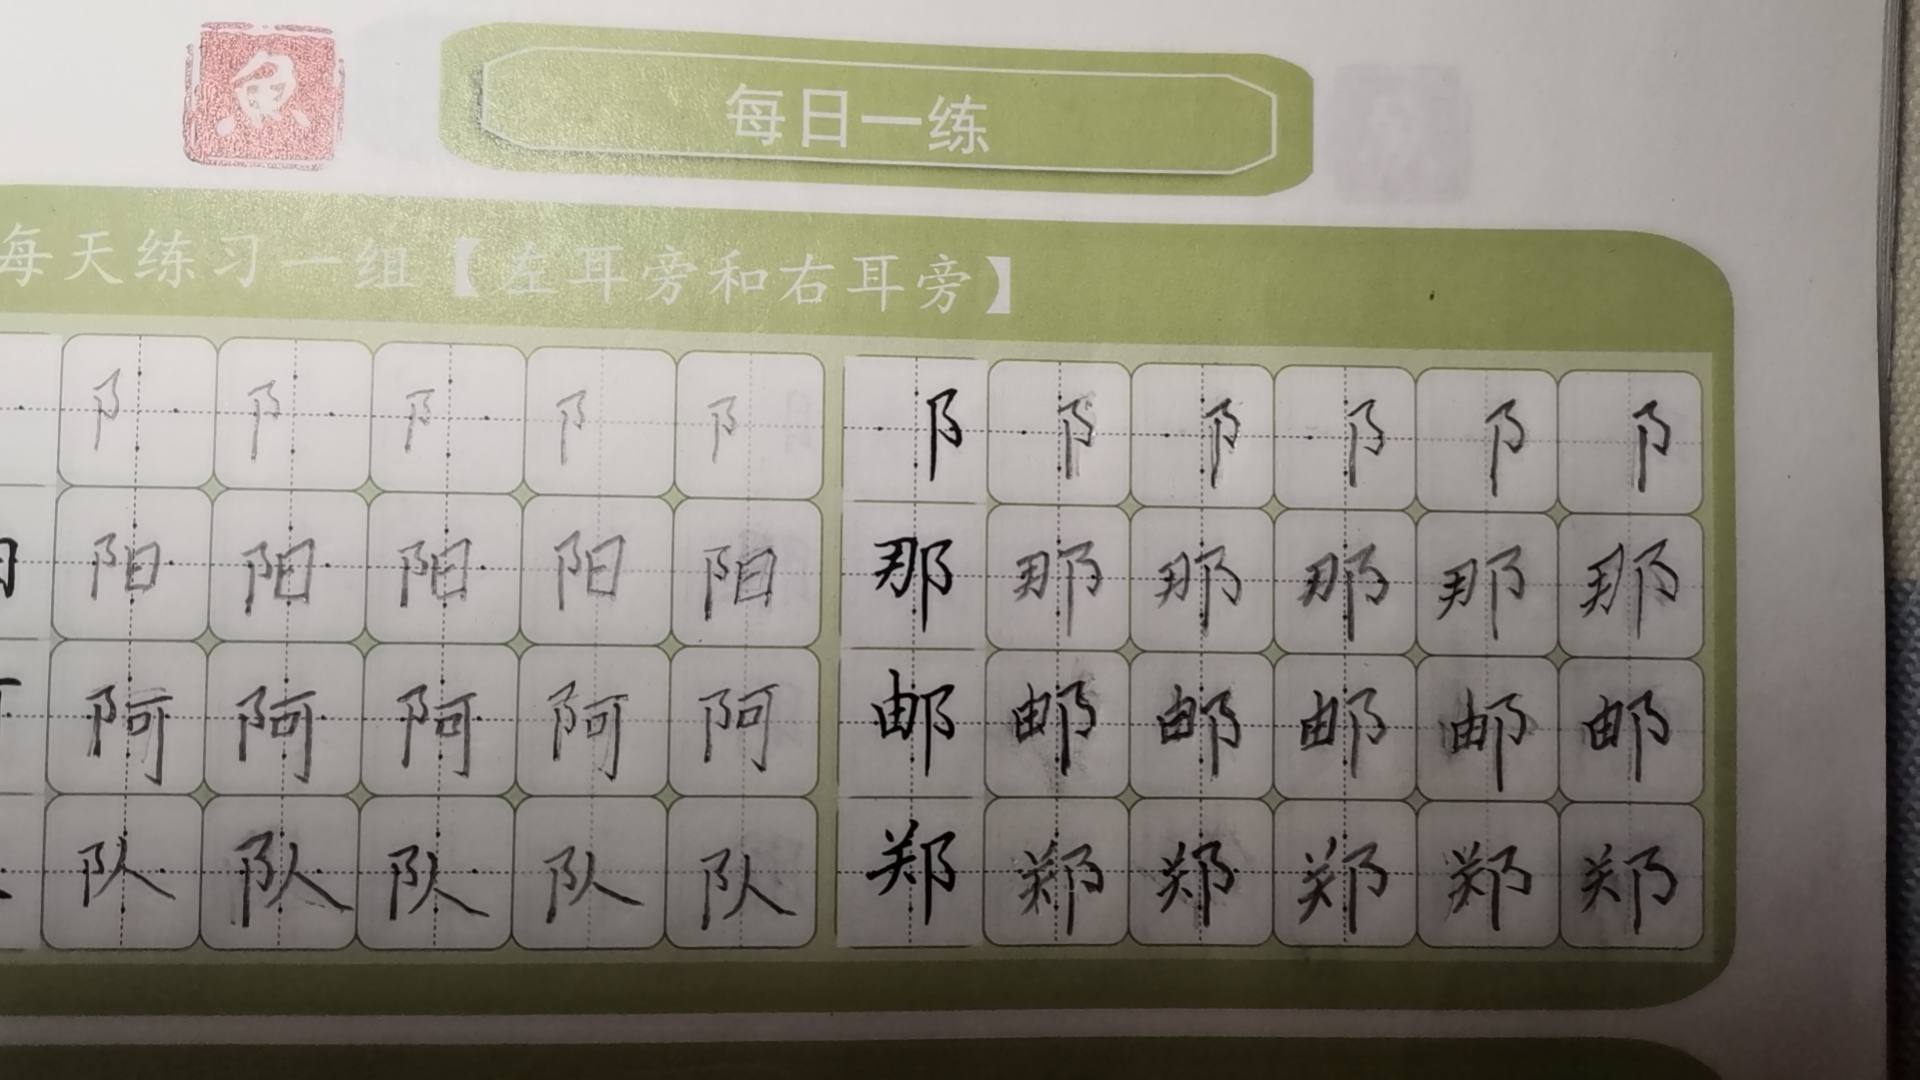 魚
每日一练
每天练习一组【左耳旁和右耳旁】
阝 阝 阝 阝 阝 阝 阝 阝 阝 阝 阝
阳 阳 阳 阳 阳 那 那 那 那 那 那
阿 阿 阿 阿 阿 邮 邮 邮 邮 邮 邮
队 队 队 队 队 郑 郑 郑 郑 郑 郑